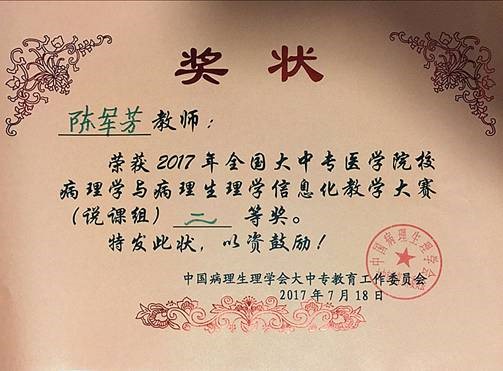 奖状
陈军芳教师：
荣获2017年全国大中专医学院校
病理学与病理生理学信息化教学大赛
（说课组）二等奖。
特发此状，以资鼓励！
中国病理生理学会大中专教育工作委员会
2017年7月18日
中国病理生理学会